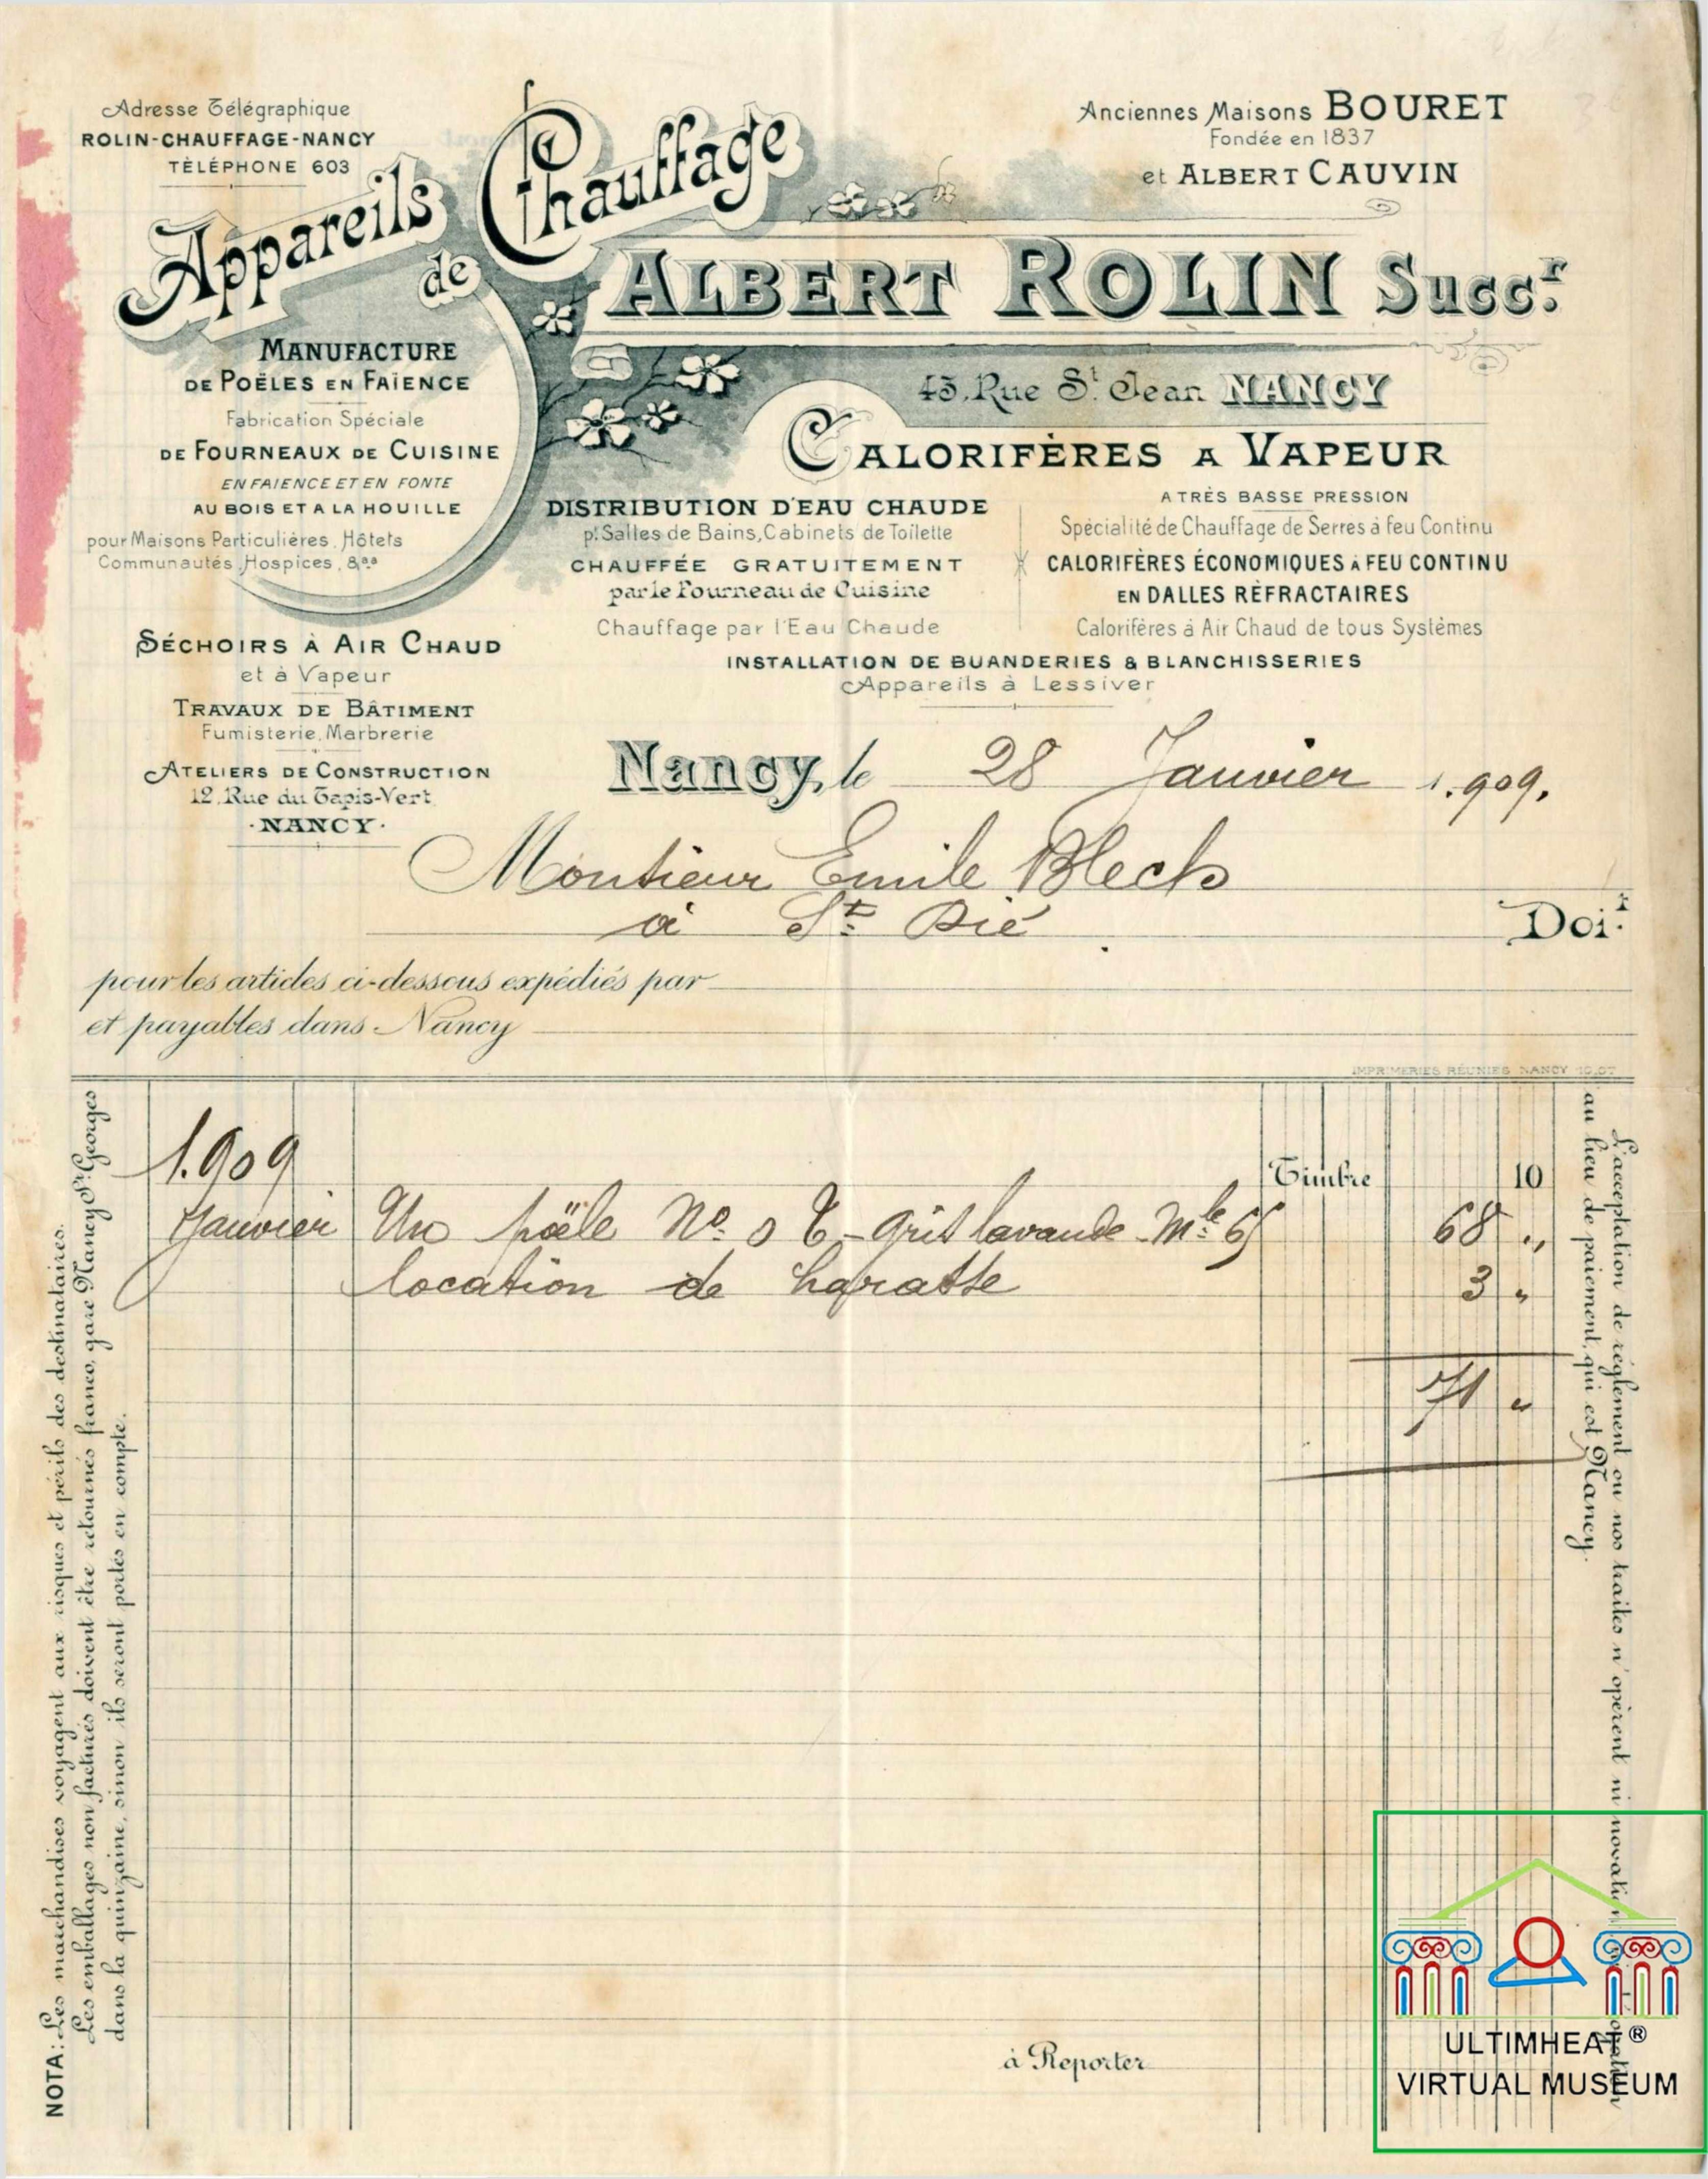 Adresse Télégraphique
ROLIN-CHAUFFAGE-NANCY
TÈLÉPHONE 603
Appareils
de
Chauffage
Anciennes Maisons BOURET
Fondée en 1837
et ALBERT CAUVIN
ALBERT ROLIN Succ.r
43, Rue St Jean NANCY
MANUFACTURE
DE POËLES EN FAÏENCE
Fabrication Spéciale
DE FOURNEAUX DE CUISINE
EN FAIENCE ET EN FONTE
AU BOIS ET A LA HOUILLE
pour Maisons Particulières, Hôtets
Communautés, Hospices, &aa
SÉCHOIRS À AIR CHAUD
et à Vapeur
TRAVAUX DE BÂTIMENT
Fumisterie, Marbrerie
ATELIERS DE CONSTRUCTION
12, Rue du Tapis-Vert
·NANCY·
CALORIFÈRES A VAPEUR
DISTRIBUTION D'EAU CHAUDE
pr Salles de Bains, Cabinets de Toilette
CHAUFFÉE GRATUITEMENT
par le Fourneau de Cuisine
Chauffage par l'Eau Chaude
A TRÈS BASSE PRESSION
Spécialité de Chauffage de Serres à feu Continu
CALORIFÈRES ÉCONOMIQUES A FEU CONTINU
EN DALLES RÉFRACTAIRES
Calorifères à Air Chaud de tous Systèmes
INSTALLATION DE BUANDERIES & BLANCHISSERIES
Appareils à Lessiver
Nancy, le 28 Janvier 1.909.
Monsieur Emile Blech
à St Dié
Doi.t
pour les articles ci-dessous expédiés par
et payables dans Nancy
IMPRIMERIES RÉUNIES NANCY 10.07
1.909
Timbre 10
Janvier Un poële No 0 T - gris lavande - Mle 65 68 "
location de harasse 3 "
71 "
à Reporter
NOTA: Les marchandises voyagent aux risques et périls des destinataires.
Les emballages non facturés doivent être retournés franco, gare Nancy St Georges
dans la quinzaine, sinon ils seront portés en compte.
L'acceptation de règlement ou nos traites n'opèrent ni novation
au lieu de paiement, qui est Nancy.
ULTIMHEAT®
VIRTUAL MUSEUM